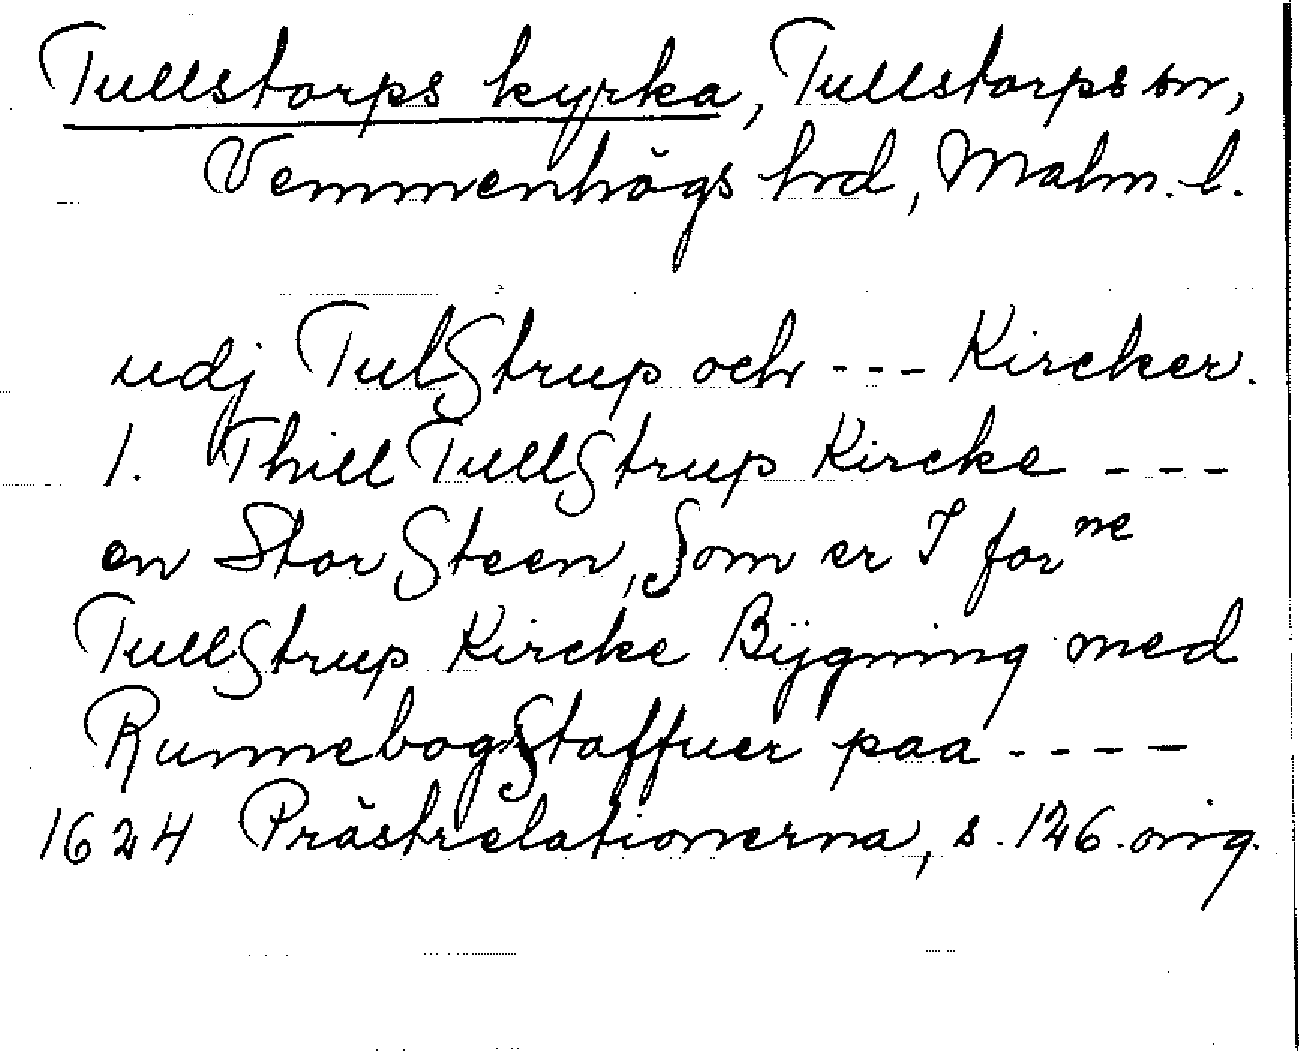 Tullstorps kyrka, Tullstorps sn,
Vemmenhögs hrd, Malm. l.
udj TulStrup och --- Kircker.
1. Thill TullStrup Kircke ---
en Stor Steen, Som er I forne
TullStrup Kircke Bÿgning med
RunnebogStaffuer paa ----
1624 Prästrelationerna, s. 126. orig.